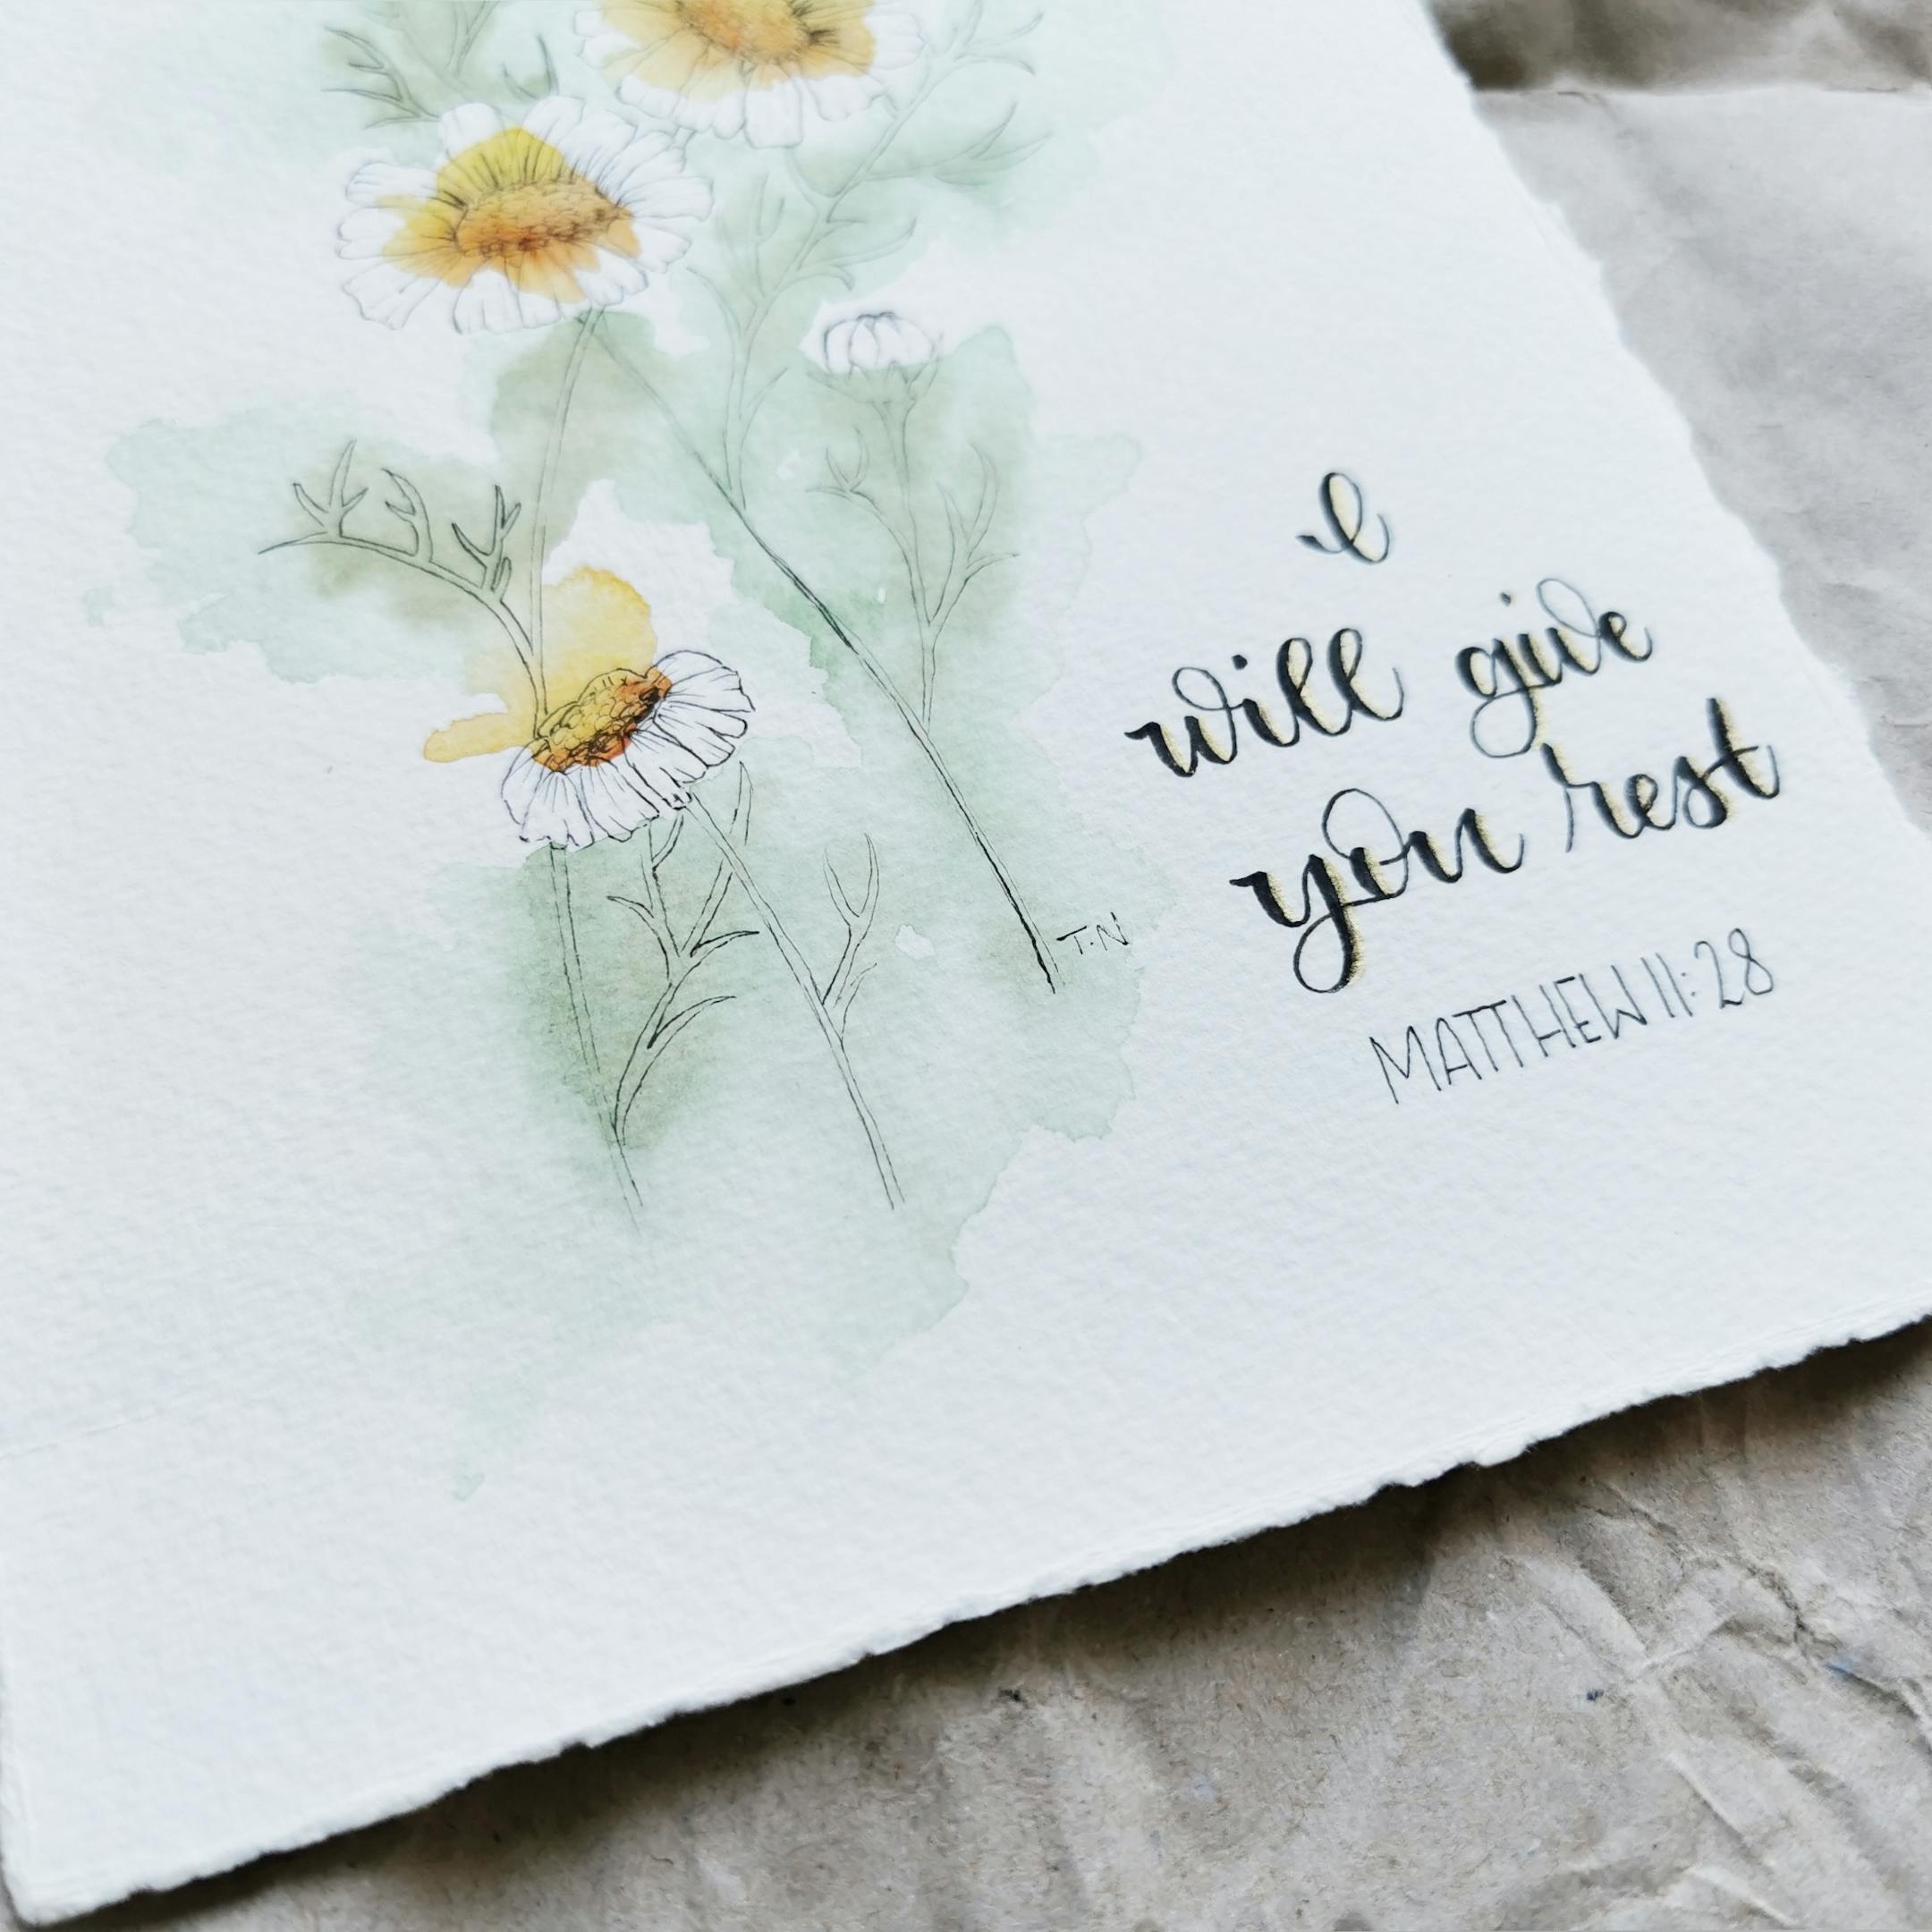 I
will give
you rest
T.N
MATTHEW 11:28